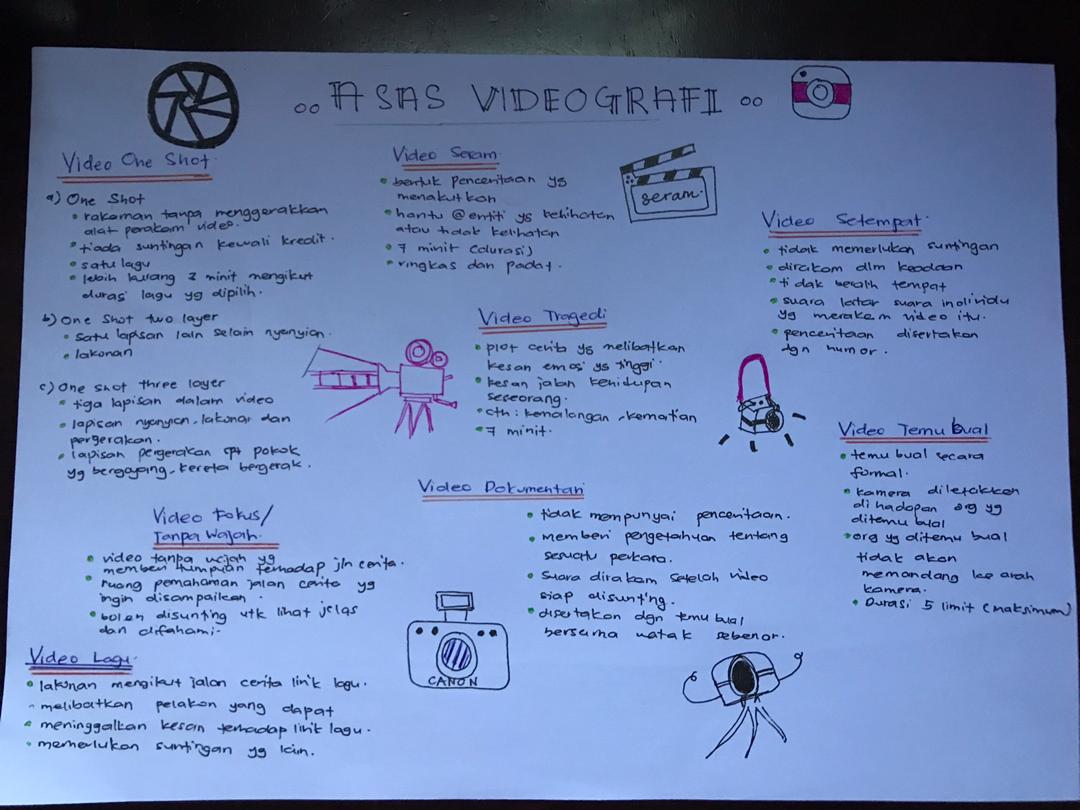 ASAS VIDEOGRAFI
Video One Shot
a) One Shot
rakaman tanpa menggerakkan
alat perakam video.
tiada suntingan kewali kredit.
satu lagu
lebih kurang 3 minit mengikut
durasi lagu yg dipilih.
b) One Shot two layer
satu lapisan lain selain nyanyian.
lakonan
c) One Shot three layer
tiga lapisan dalam video
lapisan nyanyian, lakonan dan
pergerakan.
lapisan pergerakan cpt pokok
yg bergoyang, kereta bergerak.
Video Seram
bentuk penceritaan yg
menakutkan
hantu @ entiti yg kelihatan
atau tidak kelihatan
7 minit (durasi)
ringkas dan padat.
seram
Video Tragedi
plot cerita yg melibatkan
kesan emosi yg tinggi.
kesan jalan kehidupan
seseorang.
cth: kemalangan, kematian
7 minit.
Video Setempat
tidak memerlukan suntingan
dirakam dlm keadaan
tidak beralih tempat
suara latar suara individu
yg merakam video itu.
penceritaan disertakan
dgn humor.
Video Temu bual
temu bual secara
formal.
kamera diletakkan
di hadapan org yg
ditemu bual
org yg ditemu bual
tidak akan
memandang ke arah
kamera.
Durasi 5 limit (maksimum)
Video Dokumentari
tidak mempunyai penceritaan.
memberi pengetahuan tentang
sesuatu perkara.
Suara dirakam setelah video
siap disunting.
disertakan dgn temu bual
bersama watak sebenar.
Video Fokus/
Tanpa Wajah
video tanpa wajah yg
memberi tumpuan terhadap jln cerita.
ruang pemahaman jalan cerita yg
ingin disampaikan.
boleh disunting utk lihat jelas
dan difahami.
CANON
Video Lagu
lakonan mengikut jalan cerita lirik lagu.
melibatkan pelakon yang dapat
meninggalkan kesan terhadap lirik lagu.
memerlukan suntingan yg lain.